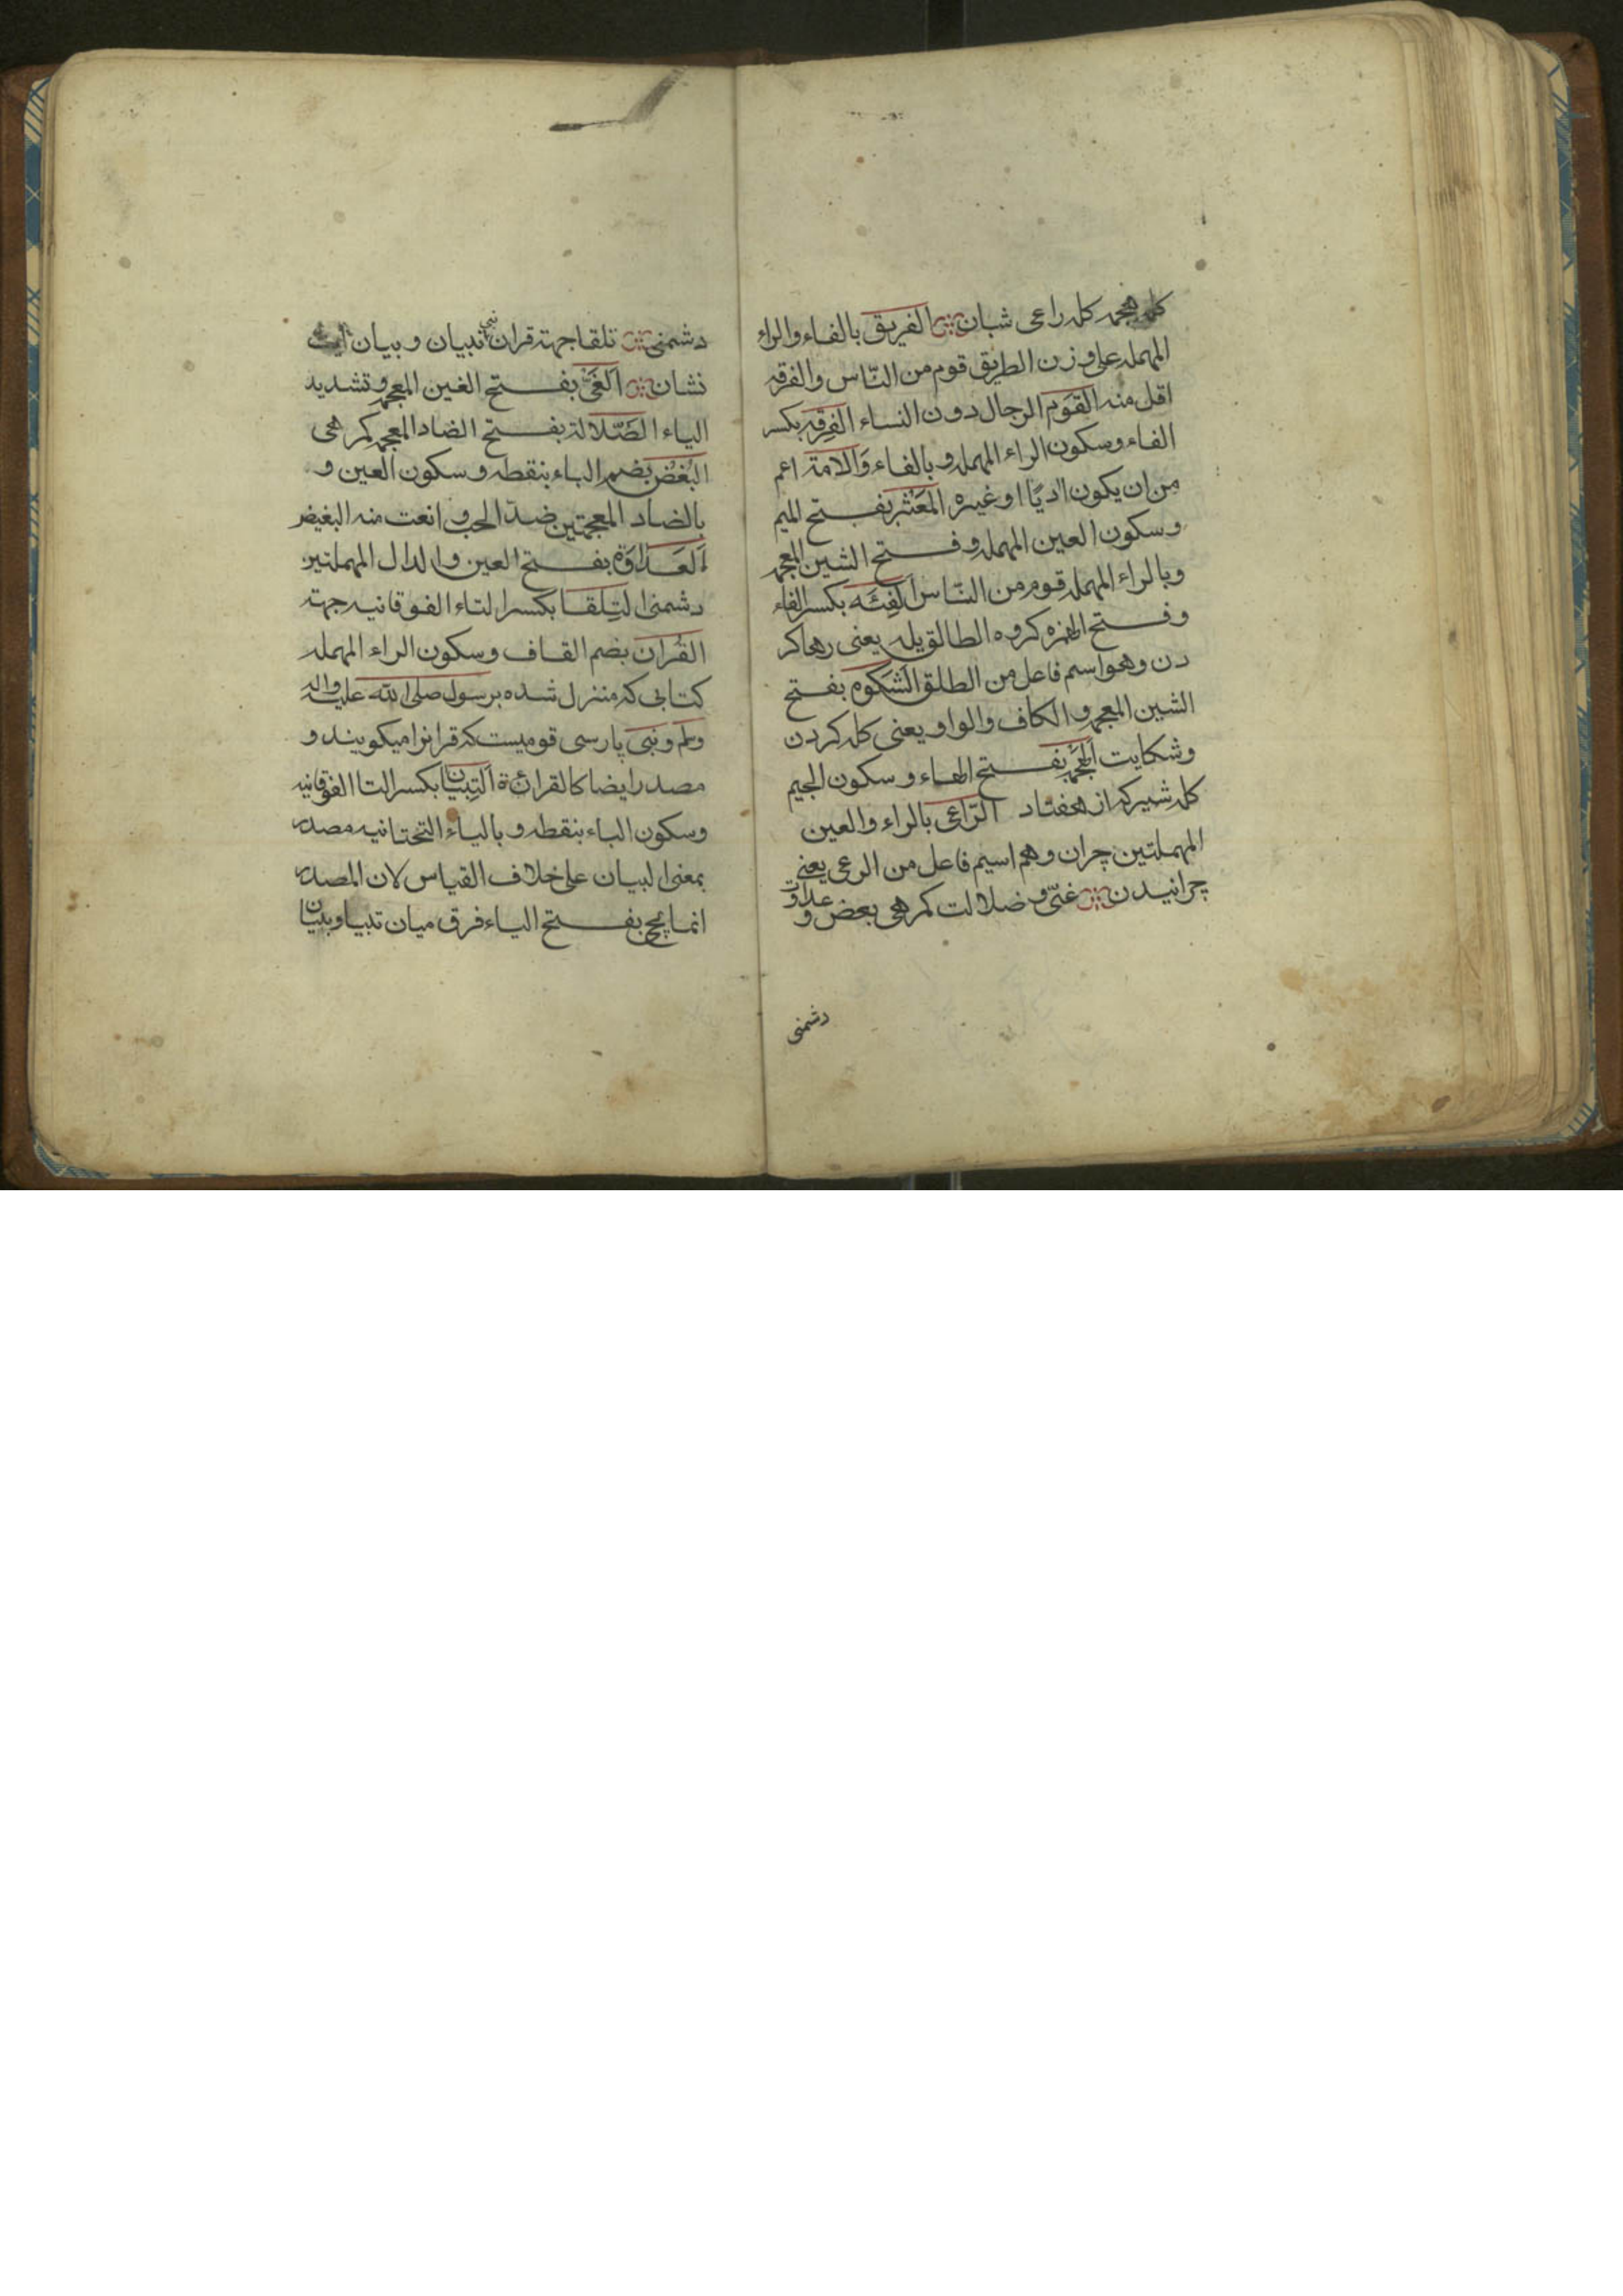 كله هجمه كله راعى شبان الفريق بالفاء والراء
المهمله على وزن الطريق قوم من النّاس والفرقه
اقل منه القَوم الرجال دون النساء الفِرقه بكسر
الفاء وسكون الراء المهمله و بالفاء وَالامة اعم
من ان يكون ادميًا او غيره المَعْشَر بفتح الميم
وسكون العين المهمله و فتح الشين المعجمه
وبالراء المهمله قوم من النّاس الفِئَه بكسر الفاء
وفتح الهمزه كروه الطالق يله يعنى رهاكر
دن وهو اسم فاعل من الطلق الشَكوه بفتح
الشين المعجمه و الكاف والواو يعنى كله كردن
وشكايت الهَجمَه بفتح الهاء و سكون الجيم
كله شير كه از هفتاد الرّاعى بالراء والعين
المهملتين چران وهم اسم فاعل من الرعى يعنى
چرانيدن غىّ و ضلالت كمرهى بغض و عداوت
دشمنى
دشمنى تلقا جهة قران نبى تبيان و بيان
نشان الغَىّ بفتح الغين المعجمه وتشديد
الياء الضَّلالة بفتح الضاد المعجمه كمرهى
البُغْض بضم الباء بنقطه و سكون الغين و
بالضاد المعجمتين ضدّ الحب و انعت منه البغيض
العَداوَة بفتح العين والدال المهملتين
دشمنى التِلقا بكسر التاء الفوقانيه جهة
القُران بضم القاف وسكون الراء المهمله
كتابى كه منزل شده بر رسول صلى الله عليه واله
وسلم و نبى پارسى قوميست كه قرانرا ميكويند و
مصدر ايضا كالقرائة التِبْيان بكسر التا الفوقانيه
وسكون الباء بنقطه و بالياء التحتانيه مصدر
بمعنى البيان على خلاف القياس لان المصدر
انما يجى بفتح الياء فرق ميان تبيا و بيان